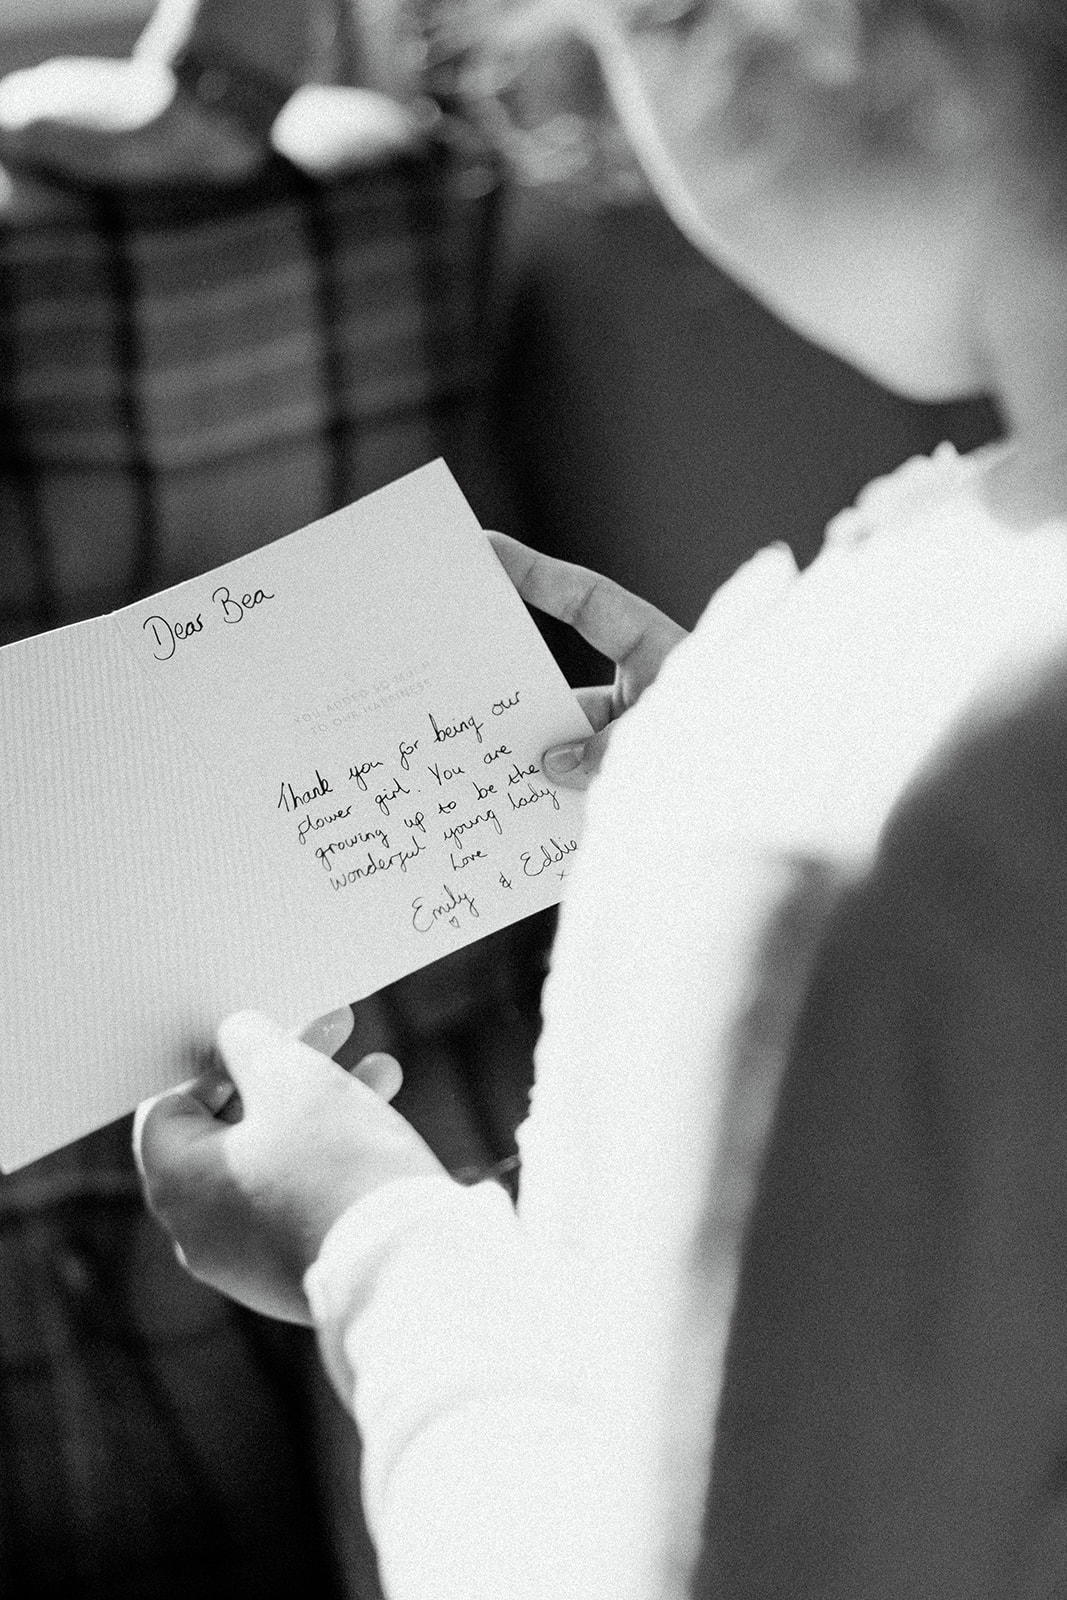 Dear Bea
YOU ADDED SO MUCH
TO OUR HAPPINESS
Thank you for being our
flower girl. You are
growing up to be the
wonderful young lady
Love
Emily & Eddie
♡ x